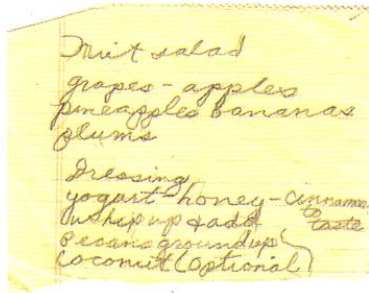 Fruit salad
grapes - apples
pineapples bananas
plums
Dressing
yogurt - honey - cinnamon
to
taste
whip up & add
pecans ground up
coconut (optional)